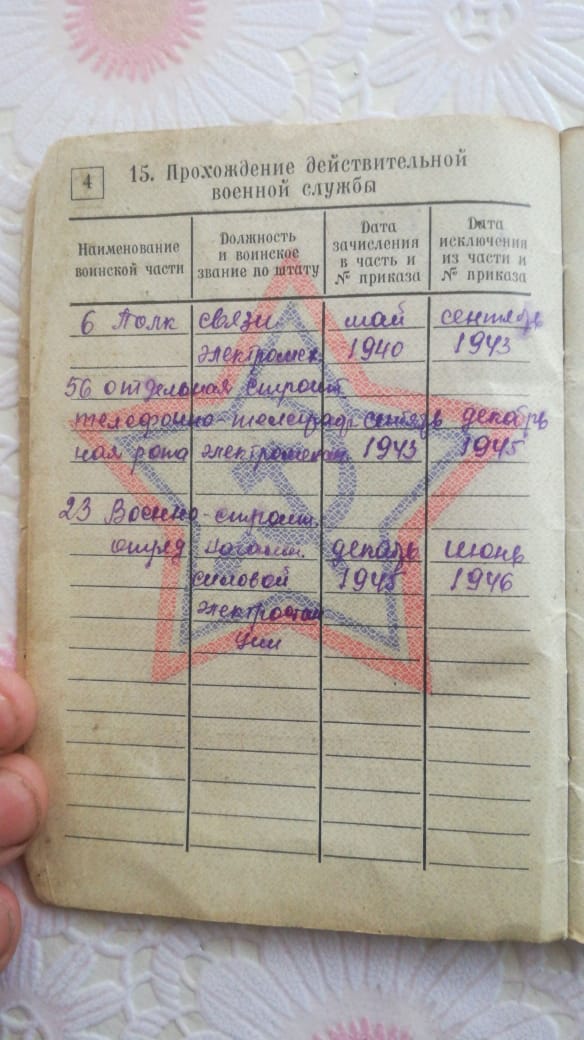 4
15. Прохождение действительной
военной службы
Наименование
воинской части
Должность
и воинское
звание по штату
Дата
зачисления
в часть и
№ приказа
Дата
исключения
из части и
№ приказа
6 Полк связи май сентябрь
электромех. 1940 1943
56 отдельная строит.
телефонно-телеграф сентябрь декабрь
ная рота 1943 1945
23 Военно-строит.
отряд декабрь июнь
силовой 1945 1946
электростан
ции